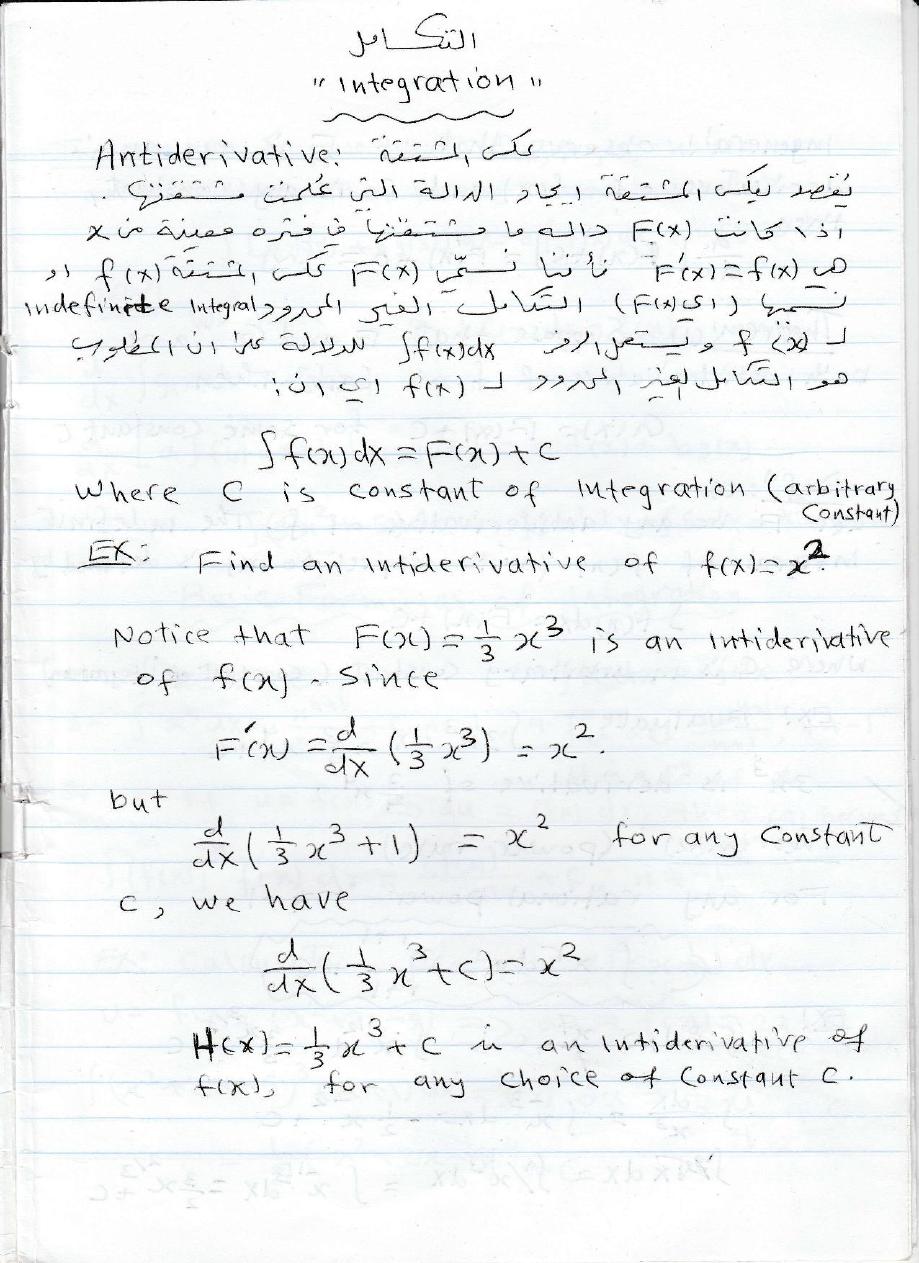 التكامل
" Integration "
Antiderivative: عكس المشتقة
يُقصد بعكس المشتقة ايجاد الدالة التي عُلمت مشتقتها .
اذا كانت F(x) داله ما مشتقتها في فتره معينة من x
هي F′(x) = f(x) فأننا نسمّي F(x) عكس المشتقة f(x) او
نسميها (اي F(x)) التكامل الغير المحدود indefinite Integral
لـ f(x) ويستعمل الرمز ∫f(x)dx للدلالة على ان المطلوب
هو التكامل لغير المحدود لـ f(x) اي ان:
∫ f(x) dx = F(x) + C
Where C is constant of Integration (arbitrary
Constant)
EX: Find an Intiderivative of f(x) = x².
Notice that F(x) = 1/3 x³ is an Intiderivative
of f(x). Since
F′(x) = d/dx (1/3 x³) = x².
but
d/dx (1/3 x³ + 1) = x² for any Constant
C, we have
d/dx (1/3 x³ + C) = x²
H(x) = 1/3 x³ + C is an Intiderivative of
f(x), for any choice of Constant C.